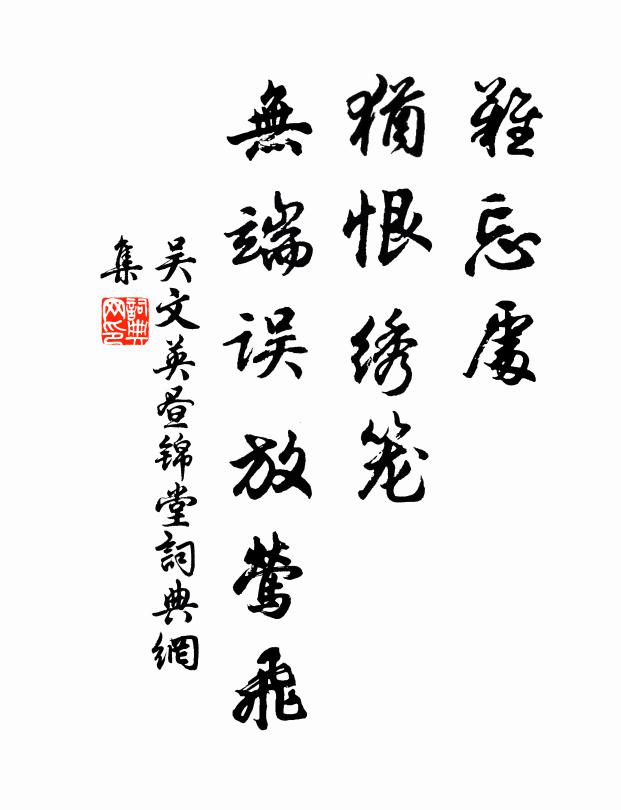 難忘處
猶恨绣笼
無端误放莺飛
吴文英昼锦堂詞典網
集
詞典网印